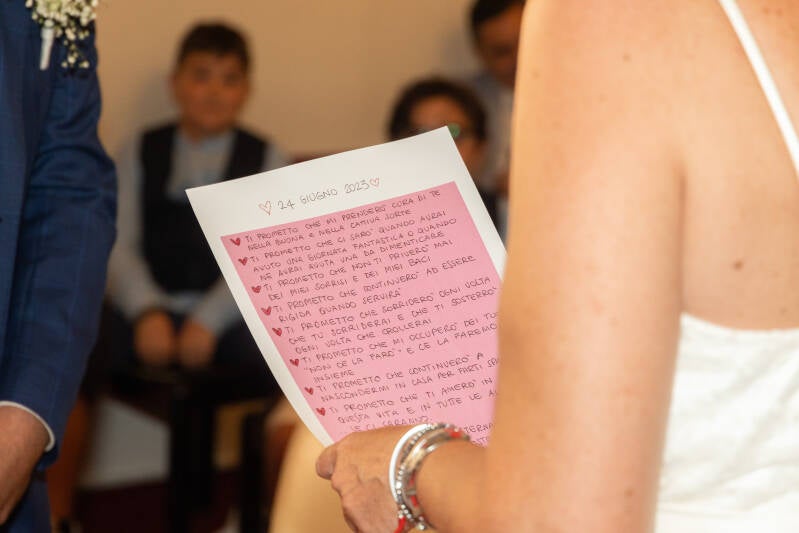 24 GIUGNO 2023
TI PROMETTO CHE MI PRENDERÒ CURA DI TE
NELLA BUONA E NELLA CATTIVA SORTE
TI PROMETTO CHE CI SARÒ QUANDO AVRAI
AVUTO UNA GIORNATA FANTASTICA O QUANDO
NE AVRAI AVUTA UNA DA DIMENTICARE
TI PROMETTO CHE NON TI PRIVERÒ MAI
DEI MIEI SORRISI E DEI MIEI BACI
TI PROMETTO CHE CONTINUERÒ AD ESSERE
RIGIDA QUANDO SERVIRÀ
TI PROMETTO CHE SORRIDERÒ OGNI VOLTA
CHE TU SORRIDERAI E CHE TI SOSTERRÒ
OGNI VOLTA CHE CROLLERAI
TI PROMETTO CHE MI OCCUPERÒ DEI
"NON CE LA FARÒ" E CE LA FAREMO
INSIEME
TI PROMETTO CHE CONTINUERÒ A
NASCONDERMI IN CASA PER FARTI
TI PROMETTO CHE TI AMERÒ IN
QUESTA VITA E IN TUTTE LE
CI SARANNO